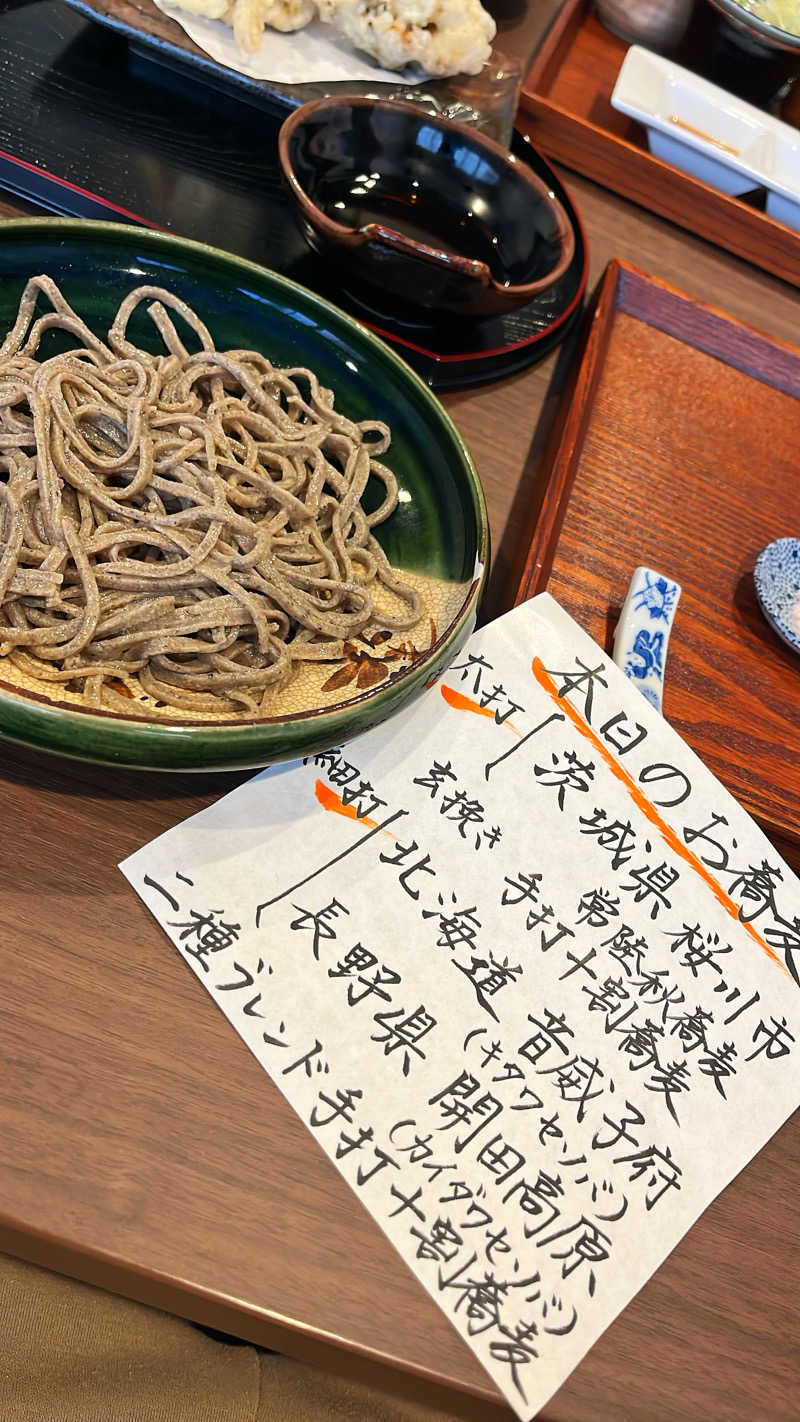 本日のお蕎麦
太打
茨城県 桜川市
常陸秋蕎麦
玄挽き 手打十割蕎麦
細打
北海道 音威子府
(キタワセソバ)
長野県 開田高原
(カイダワセソバ)
二種ブレンド手打十割蕎麦